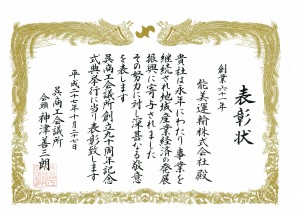 表彰状
創業六十二年
能美運輸株式会社 殿
貴社は永年にわたり事業を
継続され地域産業経済の発展
振興に寄与されました
その努力に対し深甚なる敬意
を表します
呉商工会議所創立九十周年記念
式典挙行に当り表彰致します
平成二十七年十月二十七日
呉商工会議所
会頭 神津善三朗